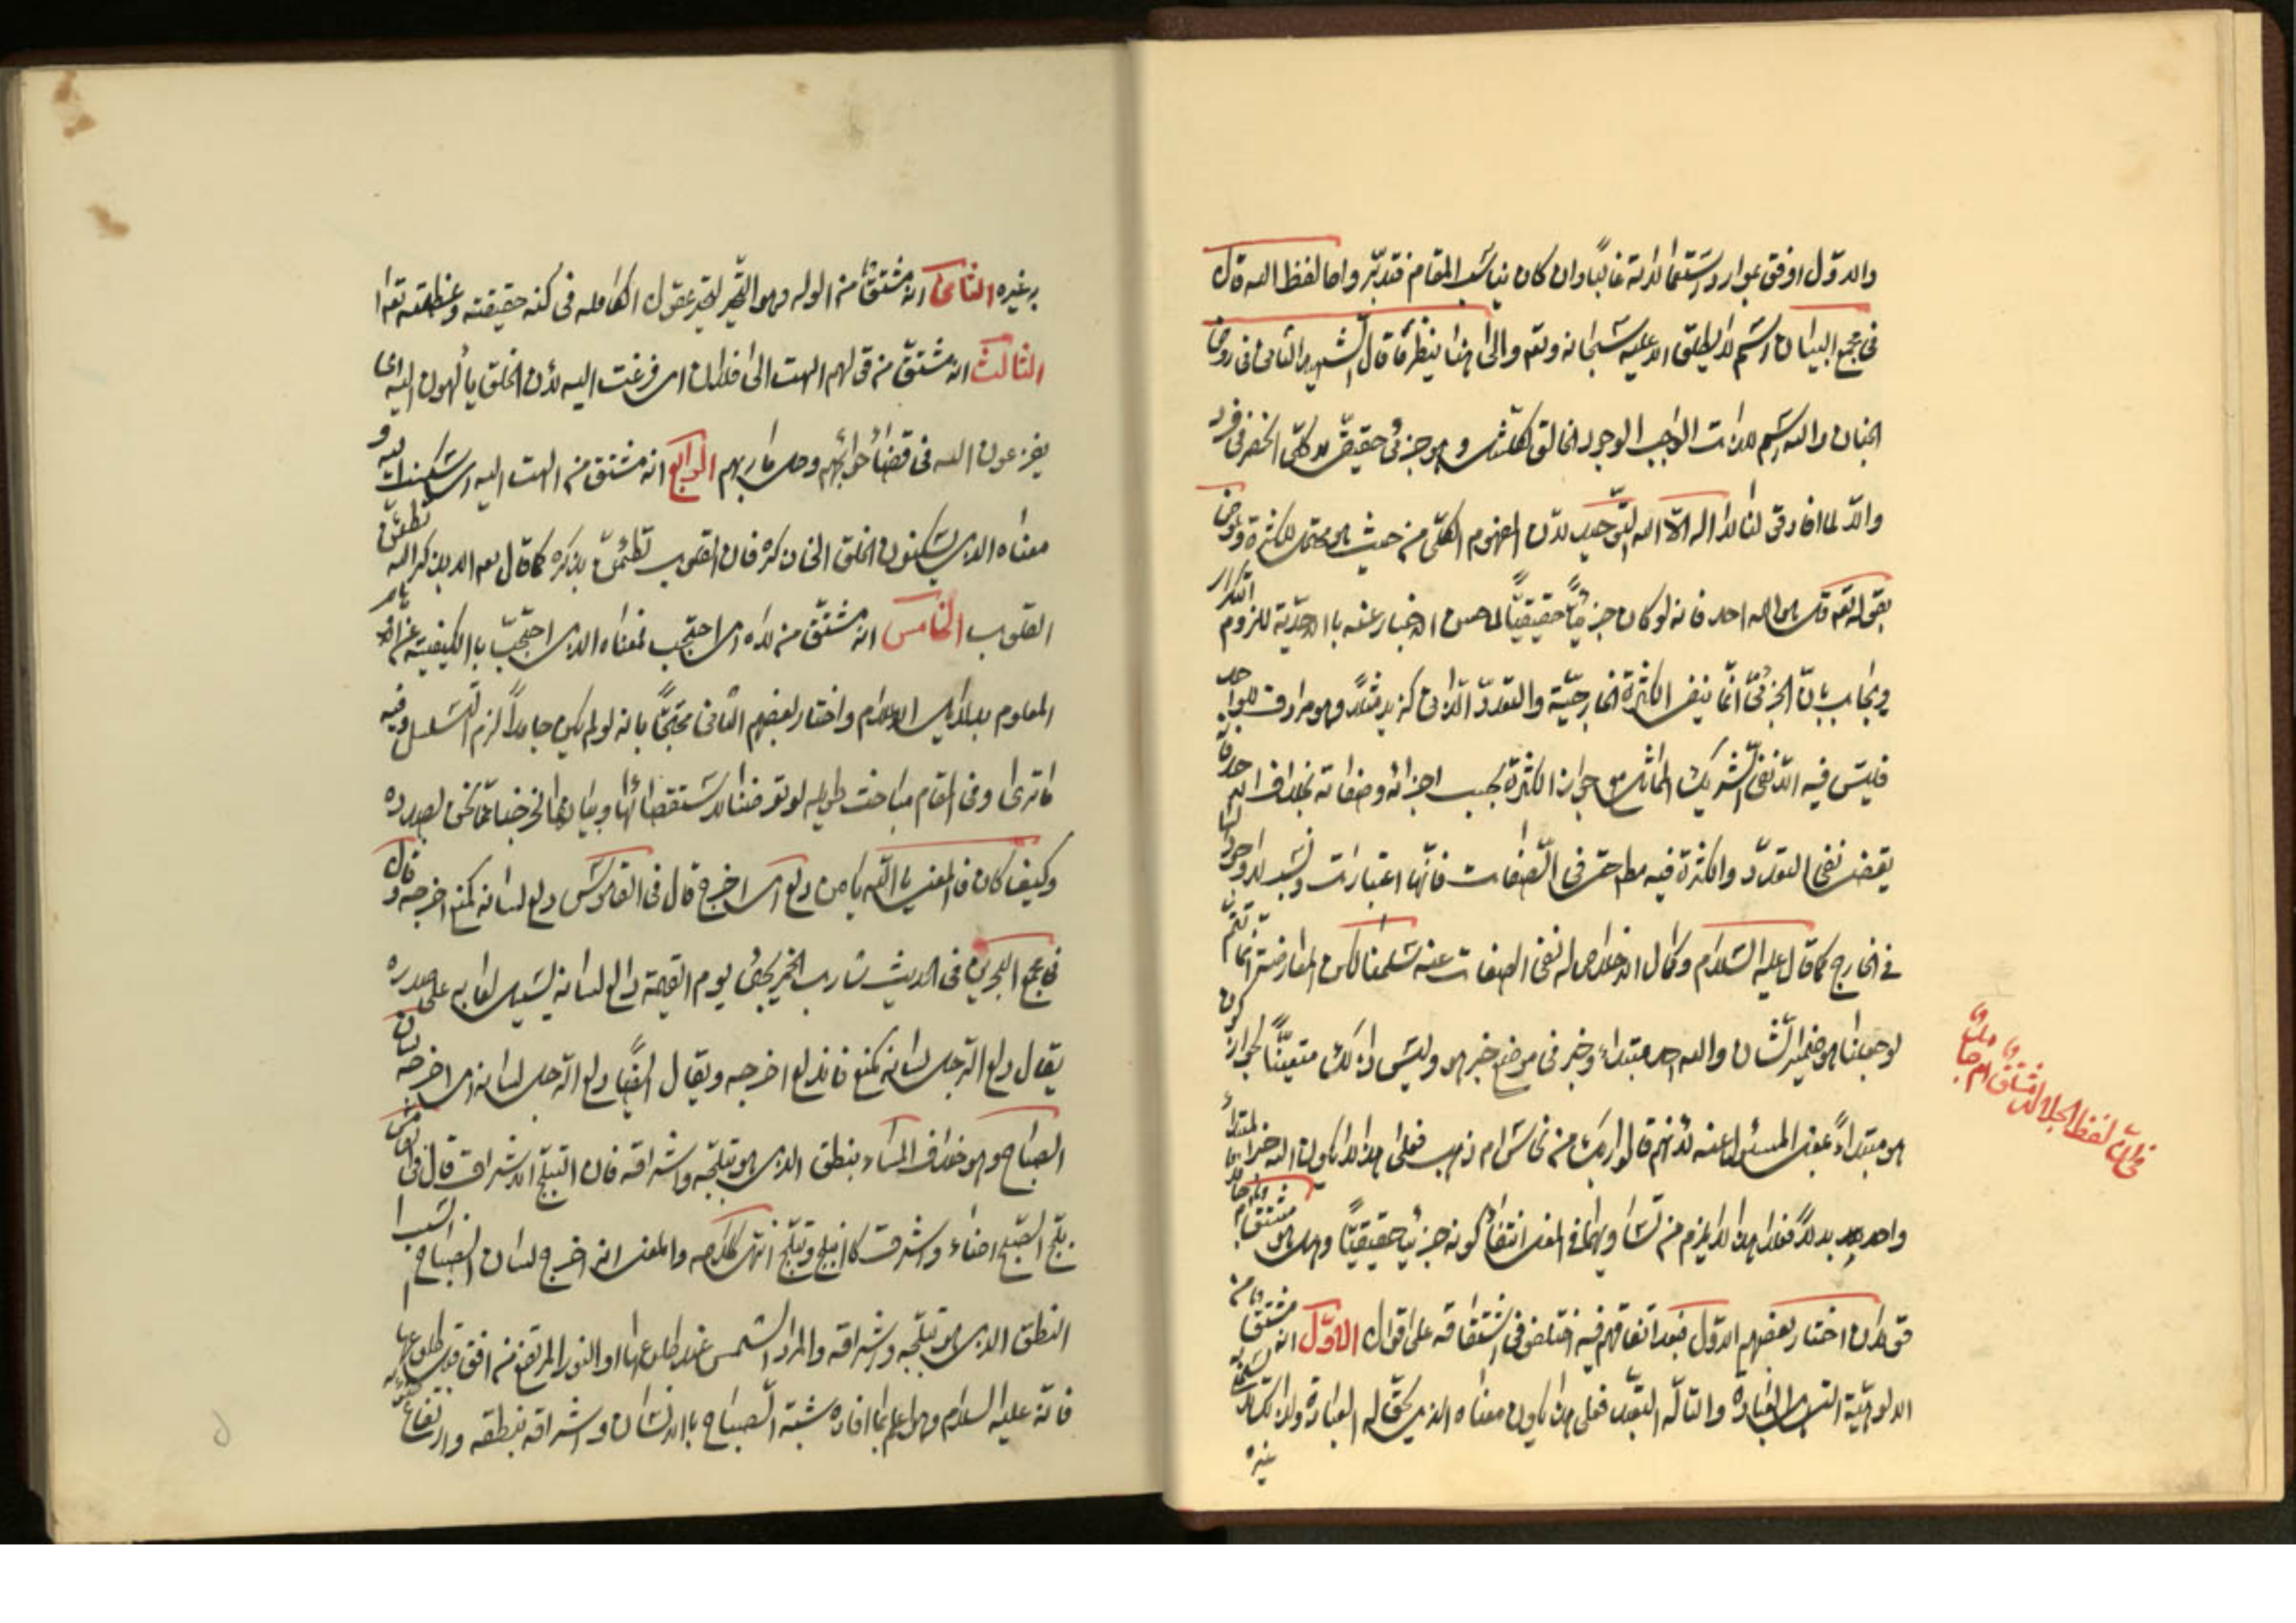 والاول اوفق بموارد استعمالاته غالبا وان كان يناسب المقام فتدبر واما لفظ الله قال
فى مجمع البيان اسم لا يطلق الا عليه سبحانه وتعه والى هذا ينظر ما قال الشهيد الثانى فى روض
الجنان والله اسم للذات الواجب الوجود الخالق لكلشئ وهو جزئى حقيقى لا كلى انحصر فى فرد
والا لما افاد قولنا لا اله الا الله التوحيد لان المفهوم الكلى من حيث هو محتمل للكثرة وعورض
بقوله تعه قل هو الله احد فانه لو كان جزئيا حقيقيا لما حسن الاخبار عنه بالاحدية للزوم التكرار
ويجاب بان الجزئى انما ينفى الكثرة الخارجية والتعدد الذاتى كزيد مثلا وهو مرادف للواحد
فليس فيه الا نفى الشريك المماثل مع جواز الكثرة بحسب اجزائه وصفاته بخلاف الاحد فانه
يقتضى نفى التعدد والكثرة فيه مط حتى فى الصفات فانها اعتبارات ونسب لا وجود لها
فى الخارج كما قال عليه السلام وكمال الاخلاص له نفى الصفات عنه سلمنا لكن المعارضة انما تتم
لو جعلنا هو ضمير الشان والله احد مبتداء وخبر فى موضع خبر هو وليس ذلك متعينا لجواز كون
هو مبتداء بمعنى المسئول عنه لانهم قالوا ربك من نحاس ام ذهب فعلى هذا الله خبر المبتداء
واحد بدلا فعلى هذا لا يلزم من تساويهما فى المعنى انتفاء كونه جزئيا حقيقيا وهل هو مشتق ام جامد
قولان اختار بعضهم الاول فبعد اتفاقهم فيه اختلفو فى اشتقاقه على اقوال الاول انه مشتق من
الالوهية التى هى العبادة والتأله التعبد فعلى هذا يكون معناه الذى يحق له العبادة ولذا لا يسمى به
غيره
فى ان لفظ الجلالة مشتق ام جامد
به غيره الثانى انه مشتق من الوله وهو التحير لتحير عقول الكامله فى كنه حقيقته وعظمته تعه
الثالث انه مشتق من قولهم الهت الى فلان اى فزعت اليه لأن الخلق يألهون اليه اى
يفزعون اليه فى قضاء حوائجهم وحل ماربهم الرابع انه مشتق من الهت اليه اى سكنت اليه و
معناه الذى يسكنون الخلق الى ذكره فان القلوب تطمئن بذكره كما قال تعه الا بذكر الله تطمئن
القلوب الخامس انه مشتق من لاه اى احتجب فمعناه الذى احتجب بالكيفية عن
المعلوم بدلائل الاعلام واختار بعضهم الثانى محتجا بانه لو لم يكن جامدا لزم التسلسل وفيه
ما ترى وفى المقام مباحث طويله لو تعرضنا لاستقصائها وبيانها لخرجنا عما نحن بصدده
وكيف كان فالمعنى يا الله يا من دلع اى اخرج قال فى القاموس دلع لسانه كمنع اخرجه وقال
فى مجمع البحرين فى الحديث شارب الخمر يجئ يوم القيمة دالع لسانه يسيل لعابه على صدره
يقال دلع الرجل لسانه كمنع فاندلع اخرجه ويقال ايضا دلع الرجل لسانه اى اخرجه لسان
الصباح وهو خلاف المساء بنطق الذى هو تبلجه واشراقه فان التبلج الاشراق قال فى القاموس
بلج الصبح اضاء واشرق كانبلج وتبلج انتهى كلامه والمعنى انه اخرج لسان الصباح
النطق الذى هو تبلجه واشراقه والمراد الشمس عند طلوعها او النور المرتفع من افق قبل طلوعها
فانه عليه السلام وهو اعلم بما افاده شبه الصباح بالانسان واشراقه بنطقه وارتفاع